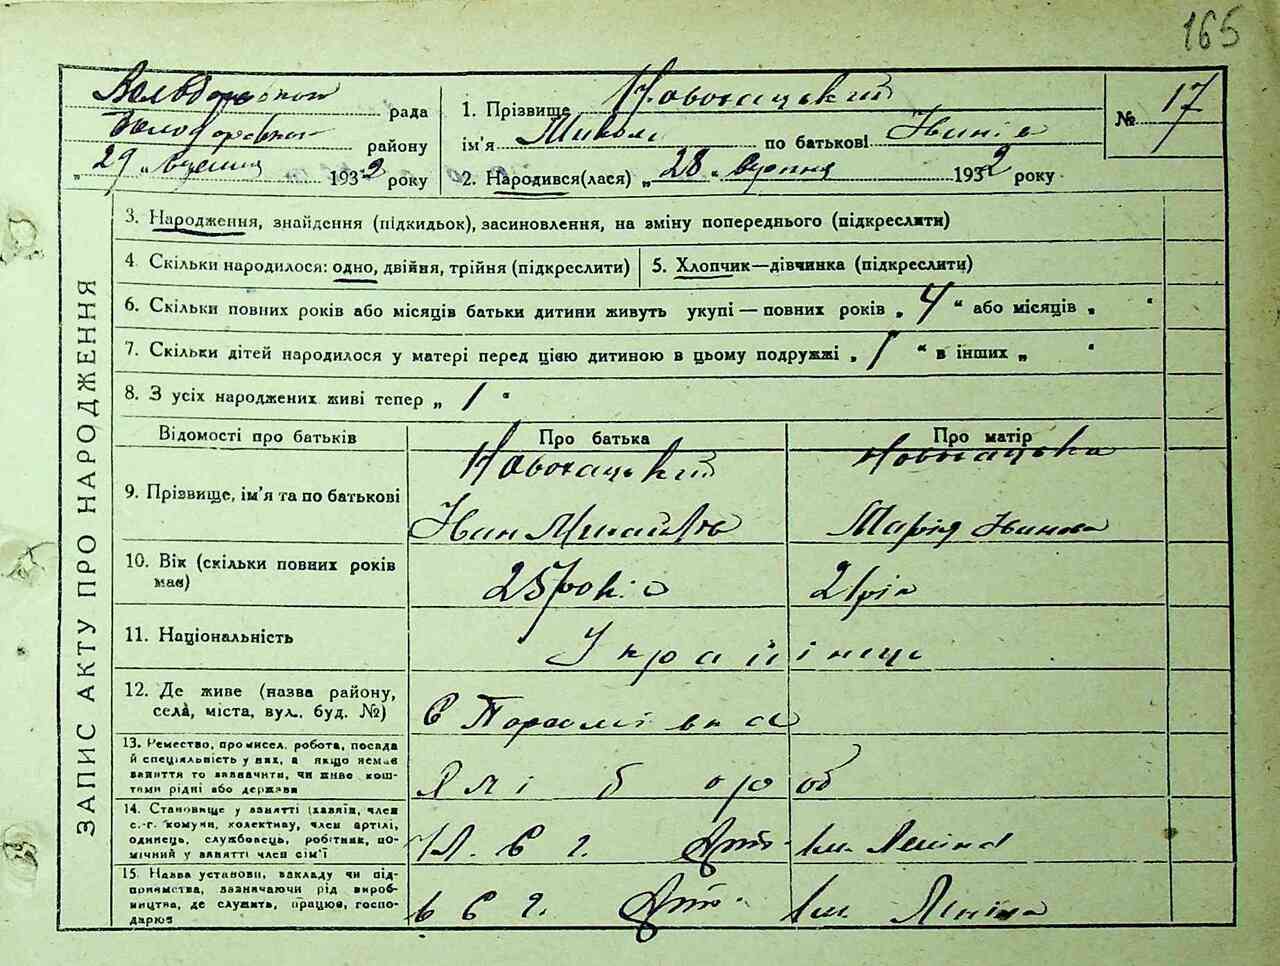 165
рада
району
„ 29 „ 1932 року
1. Прізвище
ім'я Микола по батькові
2. Народився(лася) „ 28 „ серпня 1932 року
№ 17
ЗАПИС АКТУ ПРО НАРОДЖЕННЯ
3. Народження, знайдення (підкидьок), засиновлення, на зміну попереднього (підкреслити)
4. Скільки народилося: одно, двійня, трійня (підкреслити)
5. Хлопчик—дівчинка (підкреслити)
6. Скільки повних років або місяців батьки дитини живуть укупі — повних років „ 4 “ або місяців „ “
7. Скільки дітей народилося у матері перед цією дитиною в цьому подружжі „ 1 “ в інших „ “
8. З усіх народжених живі тепер „ 1 “
Відомості про батьків
Про батька
Про матір
9. Прізвище, ім'я та по батькові
Іван
Марія Іванова
10. Вік (скільки повних років
має)
25 років
21 рік
11. Національність
Українець
12. Де живе (назва району,
села, міста, вул., буд. №)
13. Ремество, промисел, робота, посада
й спеціяльність у них, а якщо немає
заняття то зазначити, чи живе кош-
тами рідні або держави
Хлібороб
14. Становище у занятті (хазяїн, член
с.-г. комуни, колективу, член артілі,
одинець, службовець, робітник, по-
мічний у занятті член сім'ї
чл. с г. Арт. ім. Леніна
15. Назва установи, закладу чи під-
приємства, зазначаючи рід вироб-
ництва, де служить, працює, госпо-
дарює
в с г. Арт. ім. Леніна